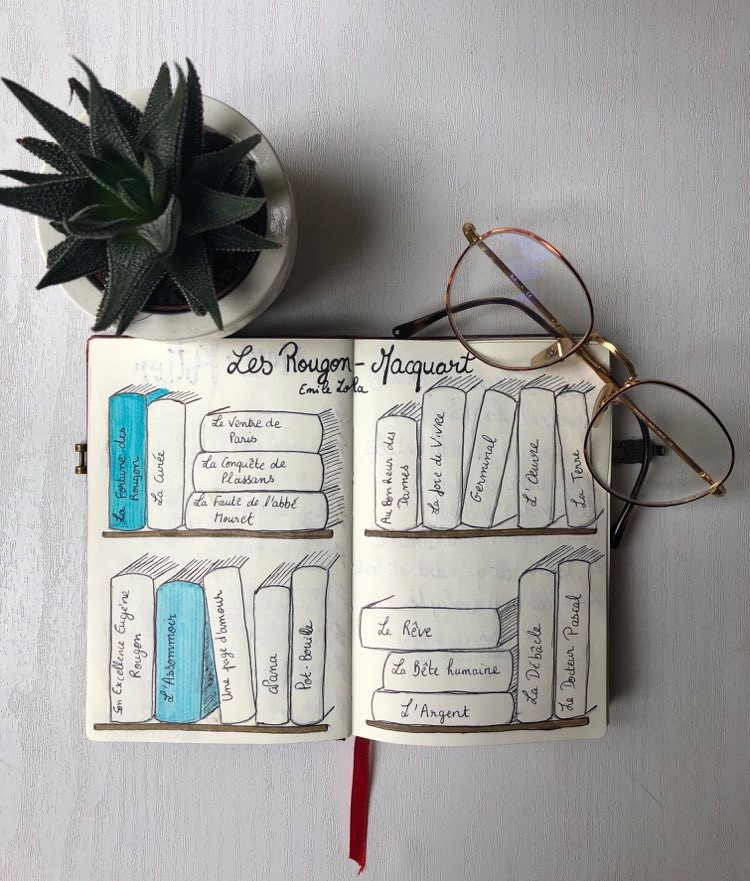 Les Rougon-Macquart
Emile Zola
La Fortune des
Rougon
La Curée
Le Ventre de
Paris
La Conquête de
Plassans
La Faute de l'abbé
Mouret
Son Excellence Eugène
Rougon
L'Assommoir
Une page d'amour
Nana
Pot-Bouille
Au Bonheur des
Dames
La Joie de Vivre
Germinal
L'Œuvre
La Terre
Le Rêve
La Bête humaine
L'Argent
La Débâcle
Le Docteur Pascal